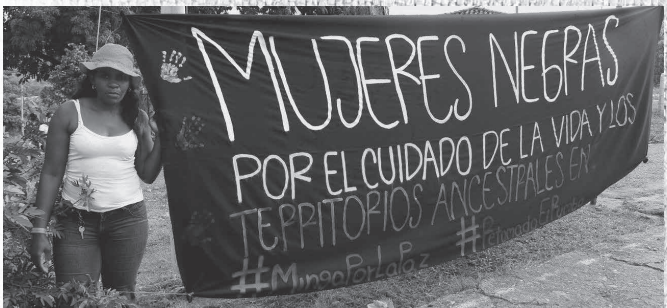 MUJERES NEGRAS
POR EL CUIDADO DE LA VIDA Y LOS
TERRITORIOS ANCESTRALES EN
#MingaPorLaPaz